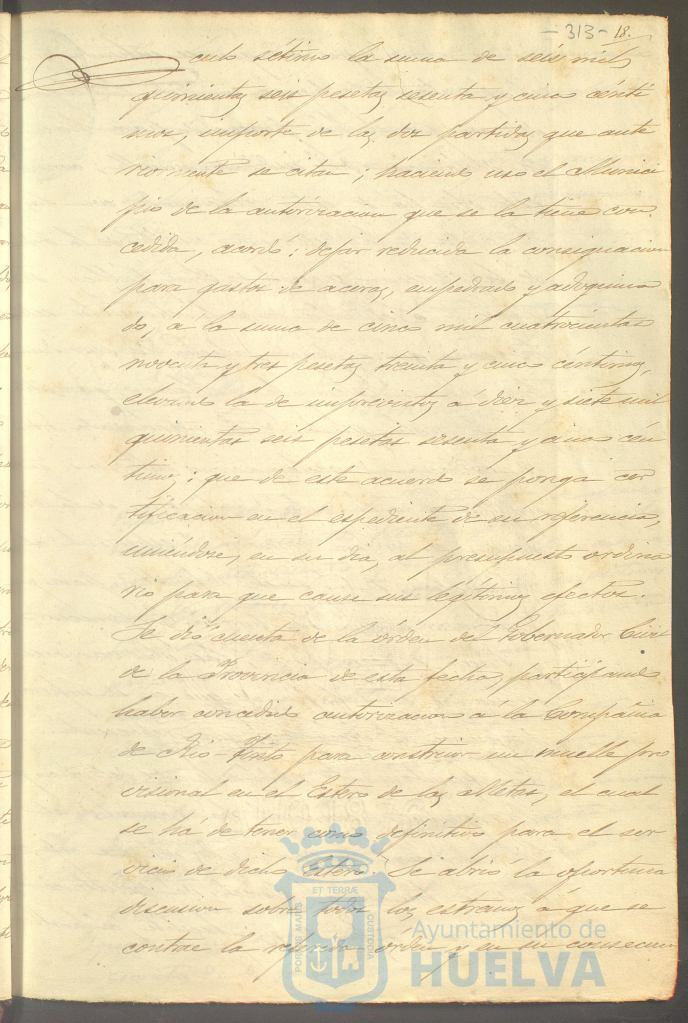 -313- 18.
culo sétimo la suma de seis mil
quinientas seis pesetas sesenta y cinco cénti
mos, importe de las dos partidas que ante
riormente se citan; haciendo uso el Munici
pio de la autorizacion que se la tiene con
cedida, acordó: dejar reducida la consignacion
para gastos de aceras, empedrado y adoquina
do, á la suma de cinco mil cuatrocientas
noventa y tres pesetas treinta y cinco céntimos,
elevando la de imprevistos á diez y siete mil
quinientas seis pesetas sesenta y cinco cén
timos; que de este acuerdo se ponga cer
tificacion en el espediente de su referencia,
uniéndose, en su dia, al presupuesto ordina
rio para que cause sus legítimos efectos.
Se dió cuenta de la órden del Gobernador Civil
de la Provincia de esta fecha, participando
haber concedido autorizacion á la Compañia
de Rio-Tinto para construir un muelle pro
visional en el Estero de las Metas, el cual
se há de tener como definitivo para el ser
vicio de dicho Estero. Se abrió la oportuna
discusion sobre todos los estremos á que se
contrae la referida órden y en su consecuen
PORTUS MARIS ET TERRÆ CUSTODIA
Ayuntamiento de
HUELVA